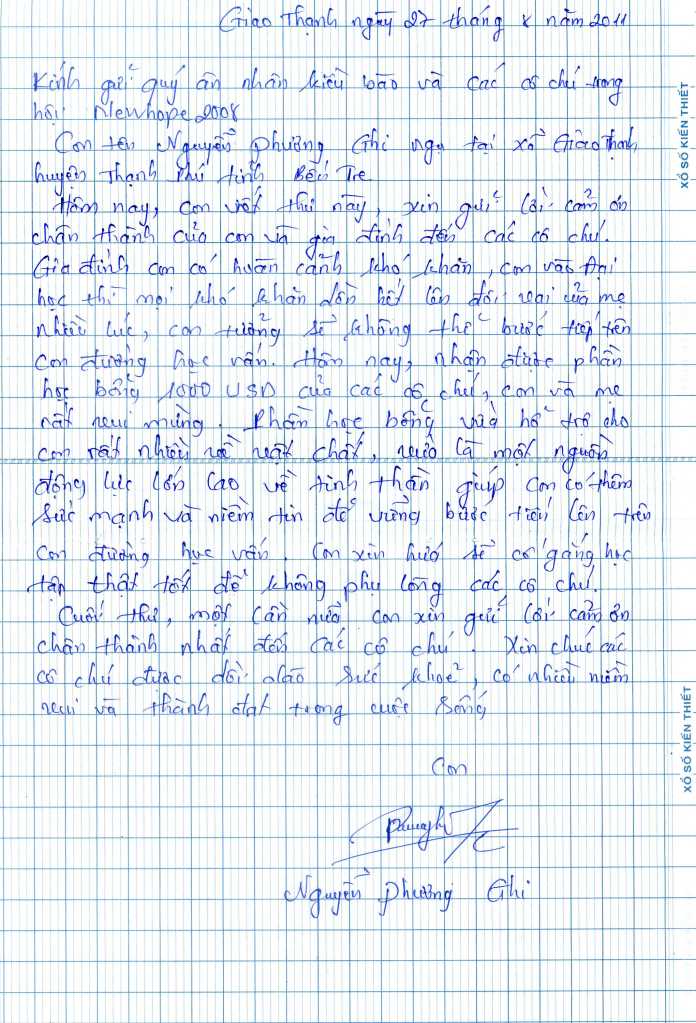 Giao Thạnh ngày 27 tháng 8 năm 2011
Kính gửi quý ân nhân kiều bào và các cô chú trong
hội Newhope2008
Con tên Nguyễn Phương Ghi ngụ tại xã Giao Thạnh,
huyện Thạnh Phú tỉnh Bến Tre
Hôm nay, con viết thư này, xin gửi lời cảm ơn
chân thành của con và gia đình đến các cô chú.
Gia đình con có hoàn cảnh khó khăn, con vào Đại
học thì mọi khó khăn dồn hết lên đôi vai của mẹ
nhiều lúc, con tưởng sẽ không thể bước tiếp trên
con đường học vấn. Hôm nay, nhận được phần
học bổng 1000 USD của các cô chú, con và mẹ
rất vui mừng. Phần học bổng vừa hỗ trợ cho
con rất nhiều về vật chất, vừa là một nguồn
động lực lớn lao về tinh thần giúp con có thêm
sức mạnh và niềm tin để vững bước tiến lên trên
con đường học vấn. Con xin hứa sẽ cố gắng học
tập thật tốt để không phụ lòng các cô chú.
Cuối thư, một lần nữa con xin gửi lời cảm ơn
chân thành nhất đến các cô chú. Xin chúc các
cô chú được dồi dào sức khoẻ, có nhiều niềm
vui và thành đạt trong cuộc sống
Con
Nguyễn Phương Ghi
XỔ SỐ KIẾN THIẾT
XỔ SỐ KIẾN THIẾT